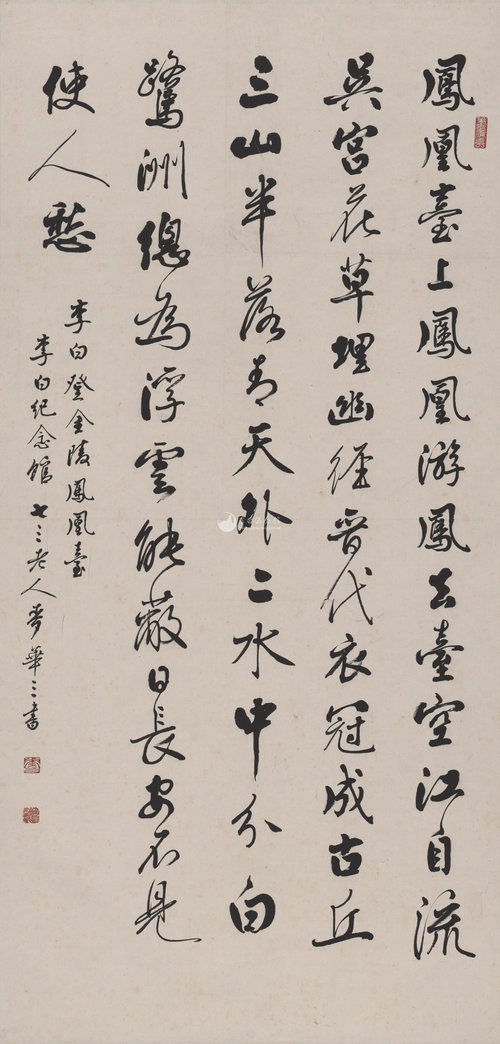 鳳凰臺上鳳凰游鳳去臺空江自流
吳宮花草埋幽徑晉代衣冠成古丘
三山半落青天外二水中分白
鷺洲總為浮雲能蔽日長安不見
使人愁
李白登金陵鳳凰臺
李白纪念館 七三老人麥華三書